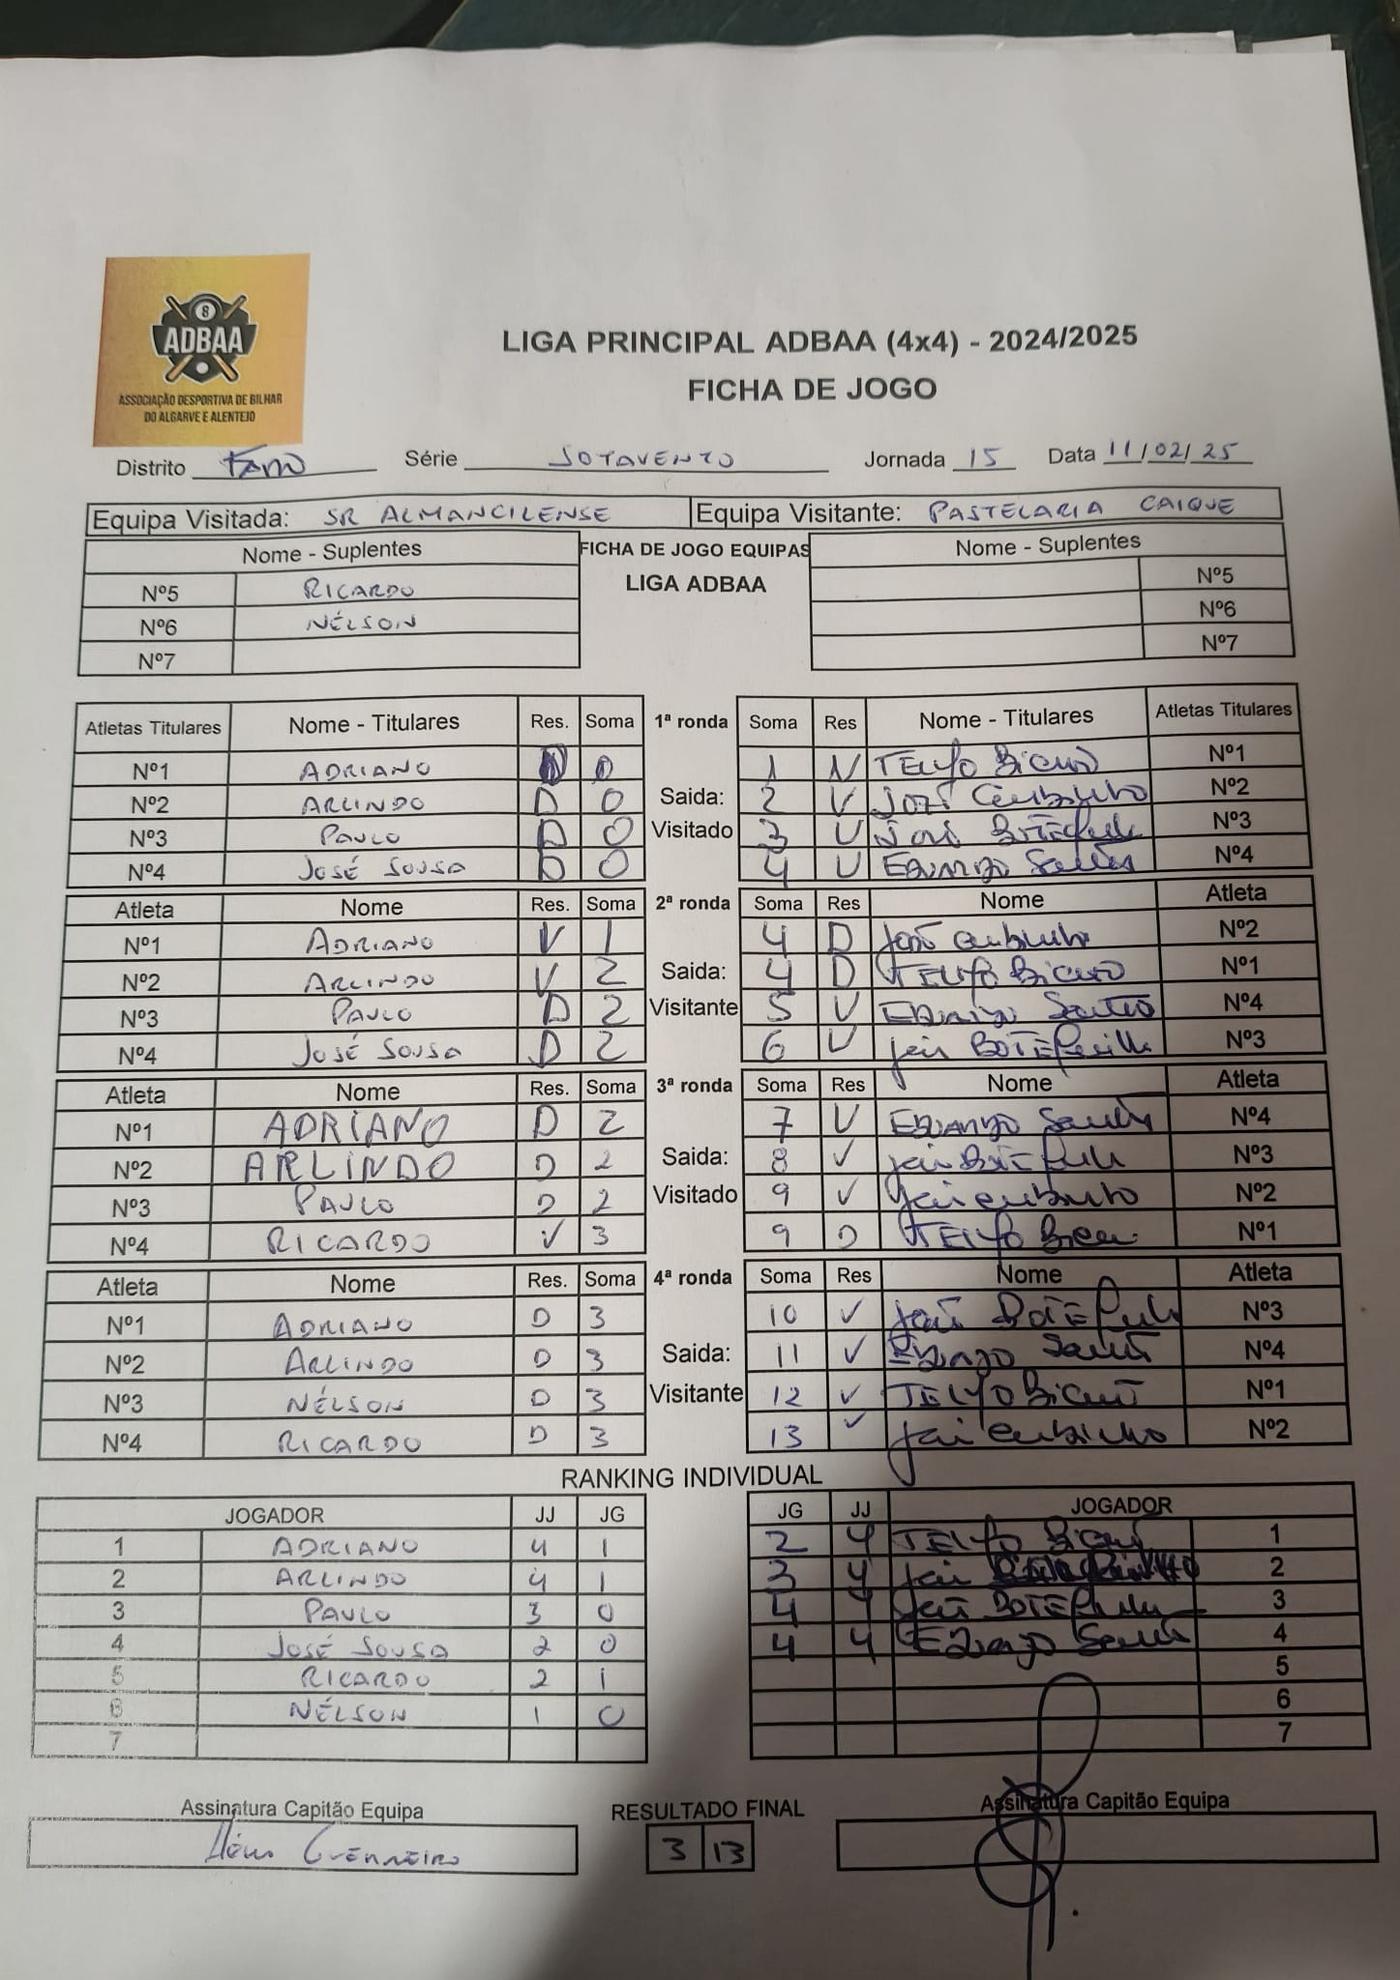 8
ADBAA
ASSOCIAÇÃO DESPORTIVA DE BILHAR
DO ALGARVE E ALENTEJO
LIGA PRINCIPAL ADBAA (4x4) - 2024/2025
FICHA DE JOGO
Distrito Faro Série SOTAVENTO Jornada 15 Data 11/02/25
Equipa Visitada: SR ALMANCILENSE Equipa Visitante: PASTELARIA CAIQUE
Nome - Suplentes FICHA DE JOGO EQUIPAS Nome - Suplentes
LIGA ADBAA
Nº5 RICARDO Nº5
Nº6 NÉLSON Nº6
Nº7 Nº7
Atletas Titulares Nome - Titulares Res. Soma 1ª ronda Soma Res Nome - Titulares Atletas Titulares
Nº1 ADRIANO D 0 1 V TELMO Nº1
Nº2 ARLINDO D 0 Saida: 2 V Nº2
Nº3 PAULO D 0 Visitado 3 V Nº3
Nº4 JOSÉ SOUSA D 0 4 V Nº4
Atleta Nome Res. Soma 2ª ronda Soma Res Nome Atleta
Nº1 ADRIANO V 1 4 D Nº2
Nº2 ARLINDO V 2 Saida: 4 D TELMO Nº1
Nº3 PAULO D 2 Visitante 5 V Nº4
Nº4 JOSÉ SOUSA D 2 6 V Nº3
Atleta Nome Res. Soma 3ª ronda Soma Res Nome Atleta
Nº1 ADRIANO D 2 7 V Nº4
Nº2 ARLINDO D 2 Saida: 8 V Nº3
Nº3 PAULO D 2 Visitado 9 V Nº2
Nº4 RICARDO V 3 9 D TELMO Nº1
Atleta Nome Res. Soma 4ª ronda Soma Res Nome Atleta
Nº1 ADRIANO D 3 10 V Nº3
Nº2 ARLINDO D 3 Saida: 11 V Nº4
Nº3 NÉLSON D 3 Visitante 12 V TELMO Nº1
Nº4 RICARDO D 3 13 V Nº2
RANKING INDIVIDUAL
JOGADOR JJ JG JG JJ JOGADOR
1 ADRIANO 4 1 2 4 TELMO 1
2 ARLINDO 4 1 3 4 2
3 PAULO 3 0 4 4 3
4 JOSÉ SOUSA 2 0 4 4 4
5 RICARDO 2 1 5
6 NÉLSON 1 0 6
7 7
Assinatura Capitão Equipa RESULTADO FINAL Assinatura Capitão Equipa
GUERREIRO 3 13